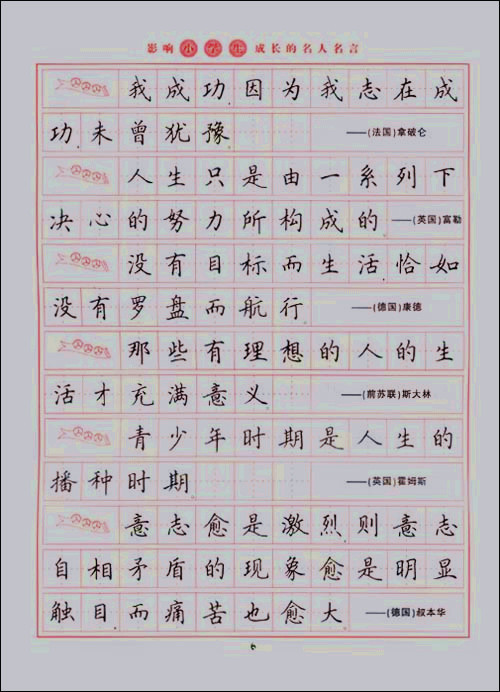 影响小学生成长的名人名言
我成功因为我志在成
功未曾犹豫 ——(法国)拿破仑
人生只是由一系列下
决心的努力所构成的 ——(英国)富勒
没有目标而生活恰如
没有罗盘而航行 ——(德国)康德
那些有理想的人的生
活才充满意义 ——(前苏联)斯大林
青少年时期是人生的
播种时期 ——(英国)霍姆斯
意志愈是激烈则意志
自相矛盾的现象愈是明显
触目而痛苦也愈大 ——(德国)叔本华
6